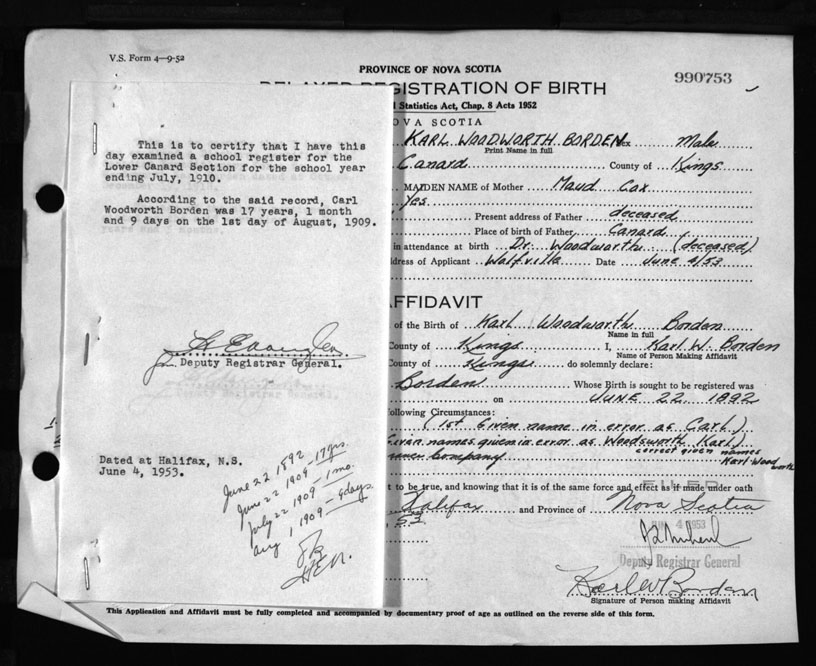 V.S. Form 4—9-52
PROVINCE OF NOVA SCOTIA
990753
REGISTRATION OF BIRTH
Statistics Act, Chap. 8 Acts 1952
OVA SCOTIA
KARL WOODWORTH BORDEN Male
Print Name in full
Canard County of Kings
MAIDEN NAME of Mother Maud Cox
Yes
Present address of Father deceased
Place of birth of Father Canard
in attendance at birth Dr. Woodworth (deceased)
dress of Applicant Wolfville Date June 4/53
AFFIDAVIT
of the Birth of Karl Woodworth Borden
Name in full
County of Kings I, Karl W. Borden
Name of Person Making Affidavit
County of Kings do solemnly declare:
Borden Whose Birth is sought to be registered was
on JUNE 22 1892
ollowing Circumstances:
(1st Given name in error as Carl)
Given names given in error as Woodsworth Karl)
Company correct given names
Karl Woodworth
t to be true, and knowing that it is of the same force and effect as if made under oath
FILED
Halifax and Province of Nova Scotia
53
4 1953
Deputy Registrar General
Karl W Borden
Signature of Person making Affidavit
This Application and Affidavit must be fully completed and accompanied by documentary proof of age as outlined on the reverse side of this form.
This is to certify that I have this
day examined a school register for the
Lower Canard Section for the school year
ending July, 1910.
According to the said record, Carl
Woodworth Borden was 17 years, 1 month
and 9 days on the 1st day of August, 1909.
Deputy Registrar General.
Dated at Halifax, N.S.
June 4, 1953.
June 22 1892
June 22 1909 — 17 yrs.
July 22 1909 — 1 mo.
Aug 1, 1909 — 9 days